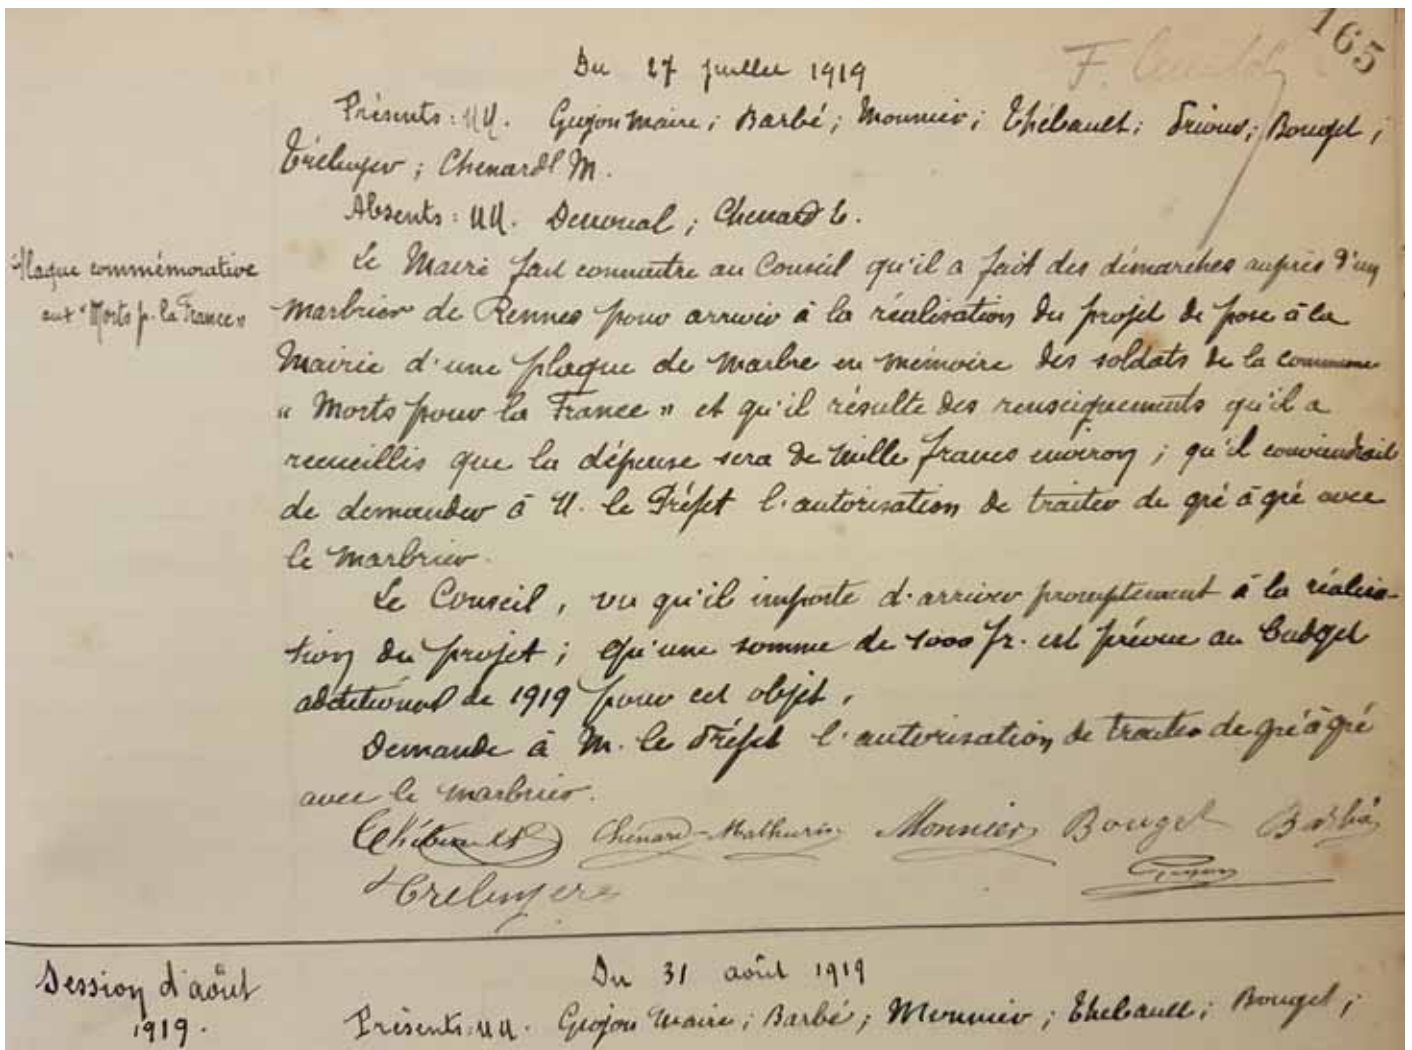 165
Du 27 juillet 1919
Présents : MM. Gujon Maire ; Barbé ; Monnier ; Thébault ; Brious ; Bouget ;
Tréluyer ; Chenard M.
Absents : MM. Denoual ; Chenard E.
Plaque commémorative
aux "Morts p. la France"
Le Maire fait connaître au Conseil qu'il a fait des démarches auprès d'un
marbrier de Rennes pour arriver à la réalisation du projet de pose à la
Mairie d'une plaque de marbre en mémoire des soldats de la commune
« Morts pour la France » et qu'il résulte des renseignements qu'il a
recueillis que la dépense sera de mille francs environ ; qu'il conviendrait
de demander à M. le Préfet l'autorisation de traiter de gré à gré avec
le marbrier.
Le Conseil, vu qu'il importe d'arriver promptement à la réalisa-
tion du projet ; qu'une somme de 1000 fr. est prévue au budget
additionnel de 1919 pour cet objet,
Demande à M. le Préfet l'autorisation de traiter de gré à gré
avec le marbrier.
Thébault Chénard-Mathurin Monnier Bouget Barbé
Treluyer Gujon
Session d'août
1919.
Du 31 août 1919
Présents : MM. Gujon Maire ; Barbé ; Monnier ; Thébault ; Bouget ;